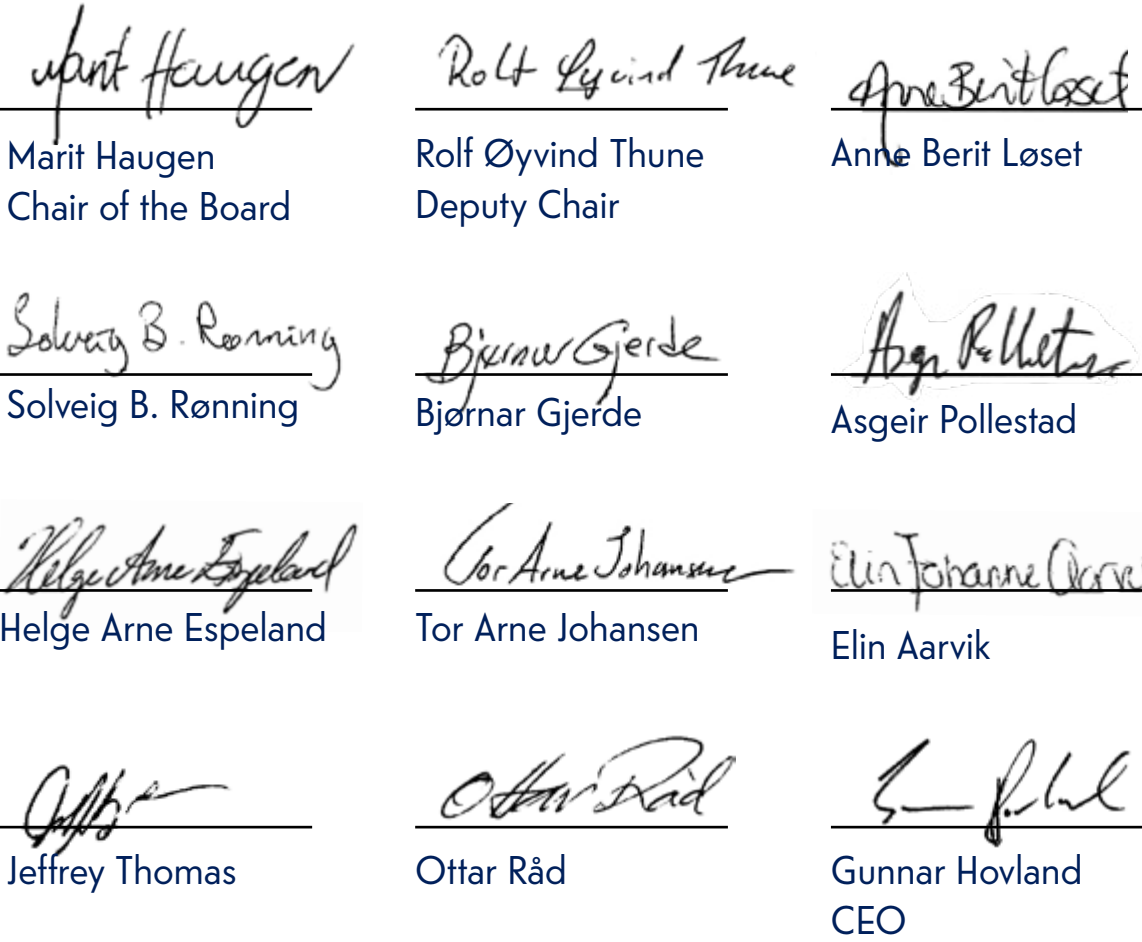 Marit Haugen
Rolf Øyvind Thune
Anne Berit Løset
Marit Haugen
Chair of the Board
Rolf Øyvind Thune
Deputy Chair
Anne Berit Løset
Solveig B. Rønning
Bjørnar Gjerde
Solveig B. Rønning
Bjørnar Gjerde
Asgeir Pollestad
Helge Arne Espeland
Tor Arne Johansen
Elin Johanne
Helge Arne Espeland
Tor Arne Johansen
Elin Aarvik
Ottar Råd
Jeffrey Thomas
Ottar Råd
Gunnar Hovland
CEO